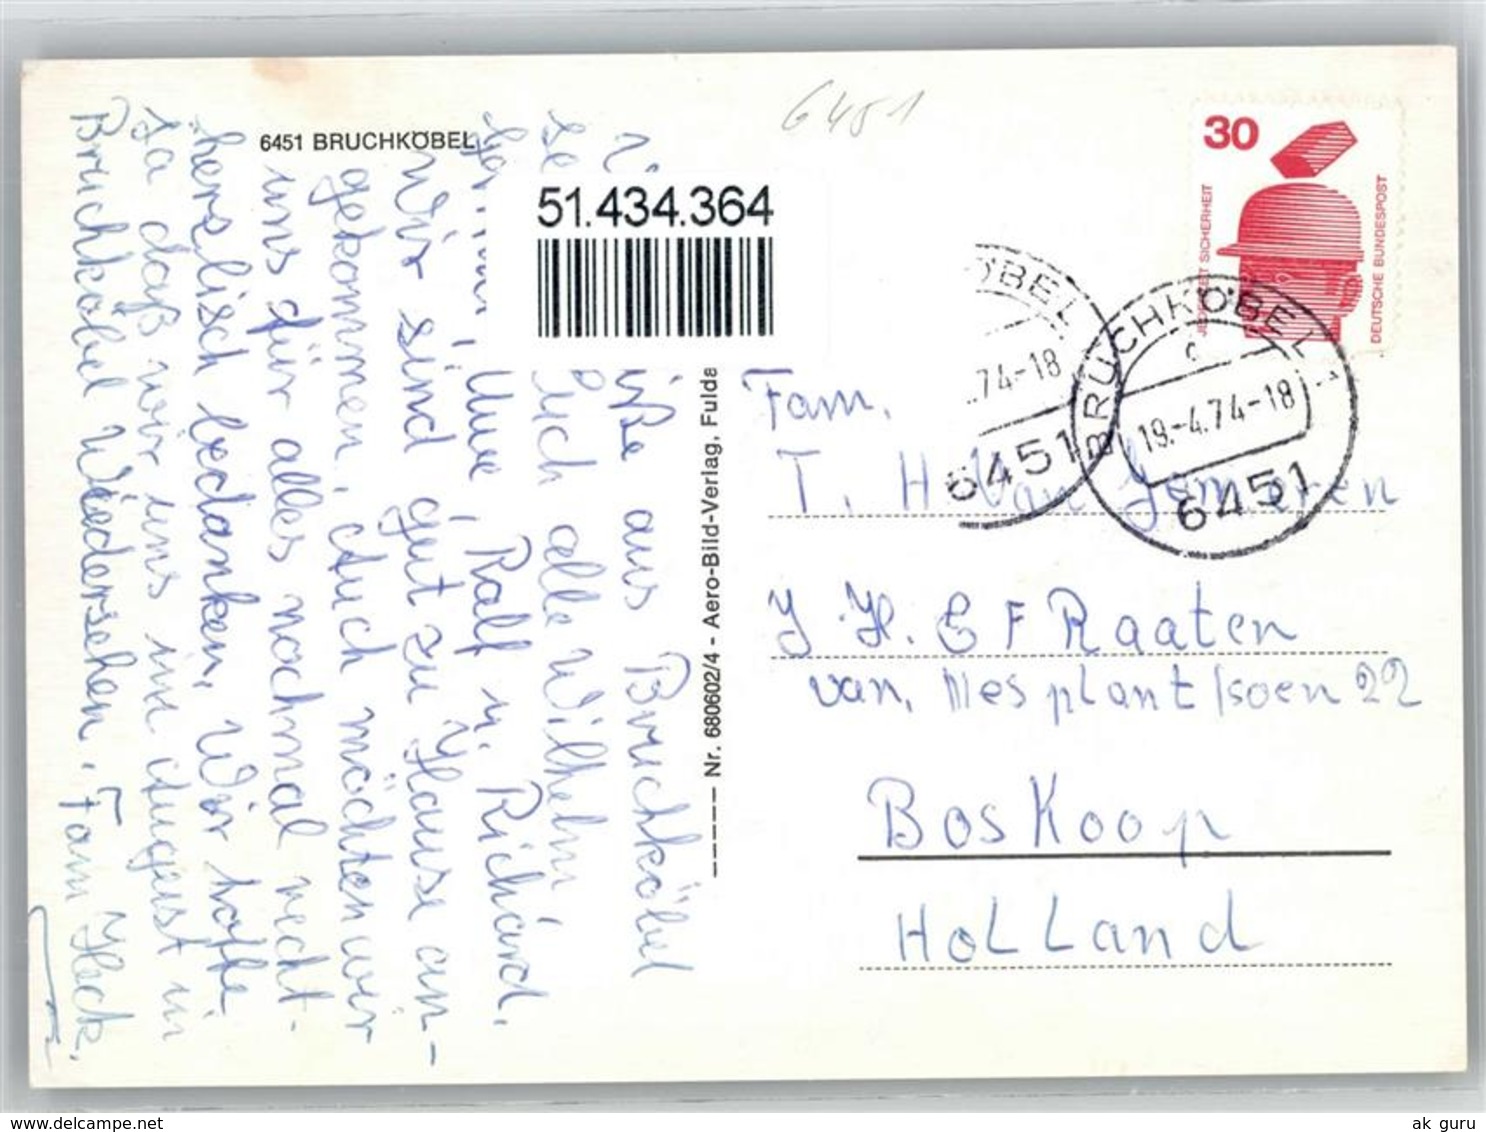 6451
6451 BRUCHKÖBEL
51.434.364
30
JEDERZEIT SICHERHEIT
DEUTSCHE BUNDESPOST
BRUCHKÖBEL
19.-4.74-18
6451
ÖBEL
.74-18
6451
Nr. 680602/4 - Aero-Bild-Verlag, Fulda
üße aus Bruchköbel
Euch alle Wilhelm
Uwe, Ralf u. Richard.
Wir sind gut zu Hause an-
gekommen. Auch möchten wir
uns für alles nochmal recht-
herzlisch bedanken. Wir hoffe
Ja daß wir uns im August in
Bruchköbel Wiedersehen. Fam Heck.
Fam.
T. H. Van
J. H. E F Raaten
van. Nes plantsoen 22
BosKoop
HoLLand
ak guru